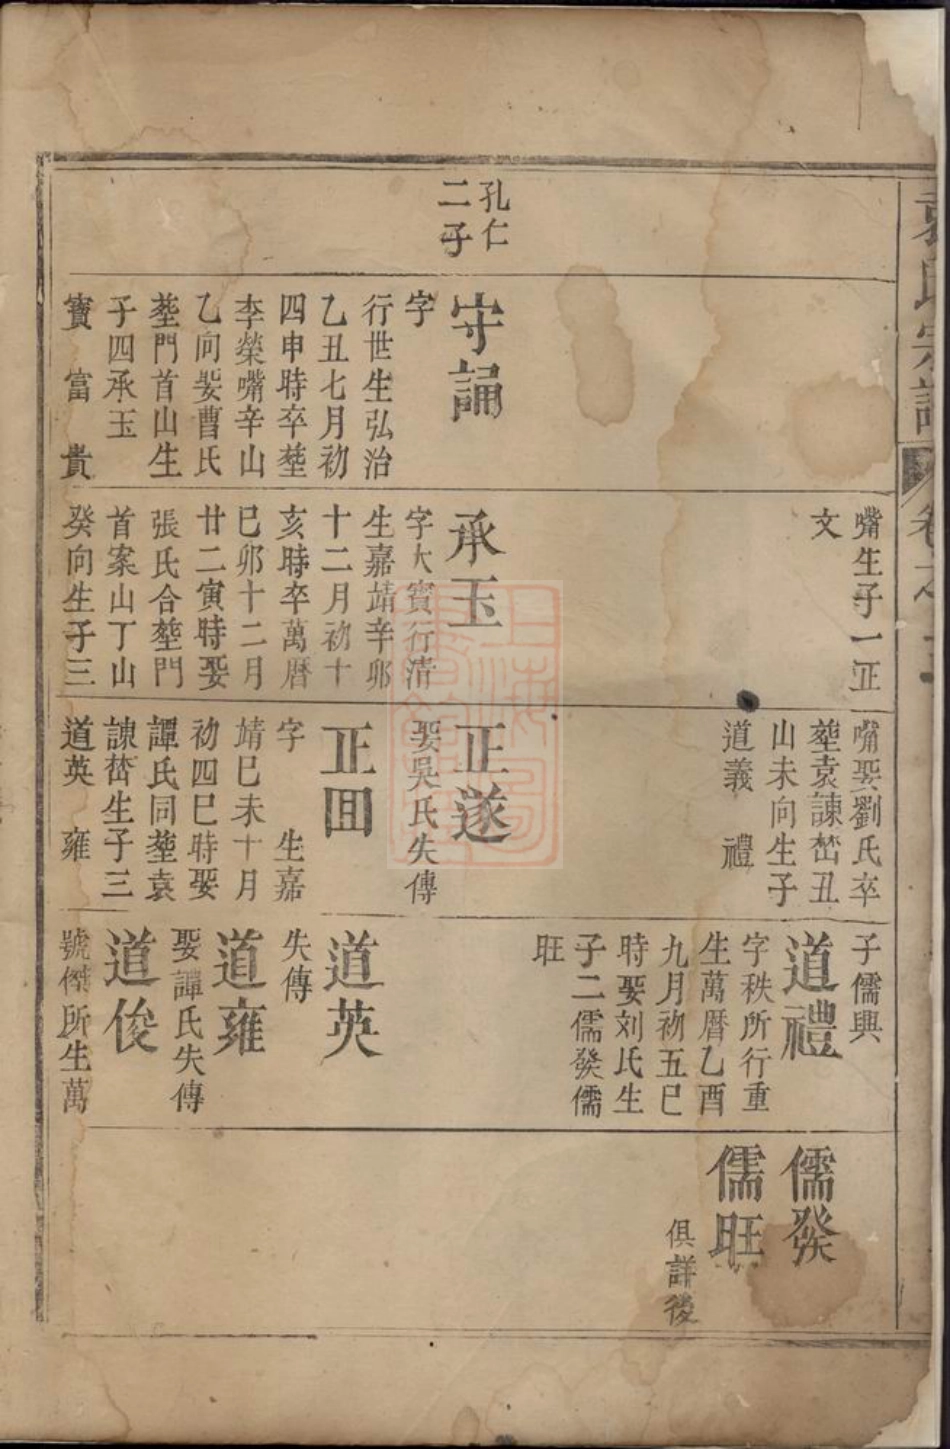 袁氏宗譜
卷之
孔仁
二子
守誦
字
行世生弘治
乙丑七月初
四申時卒塟
李榮嘴辛山
乙向娶曹氏
塟門首山生
子四承玉
寳 富 貴
嘴生子一正
文
承玉
字大賓行清
生嘉靖辛卯
十二月初十
亥時卒萬曆
巳卯十二月
廿二寅時娶
張氏合塟門
首案山丁山
癸向生子三
嘴娶劉氏卒
塟袁諫嶅丑
山未向生子
道義 禮
正遂
娶吳氏失傳
正囬
字 生嘉
靖巳未十月
初四巳時娶
譚氏同塟袁
諫嶅生子三
道英 雍
子儒興
道禮
字秩所行重
生萬曆乙酉
九月初五巳
時娶刘氏生
子二儒發儒
旺
道英
失傳
道雍
娶譚氏失傳
道俊
號傑所生萬
儒發
儒旺
俱詳後